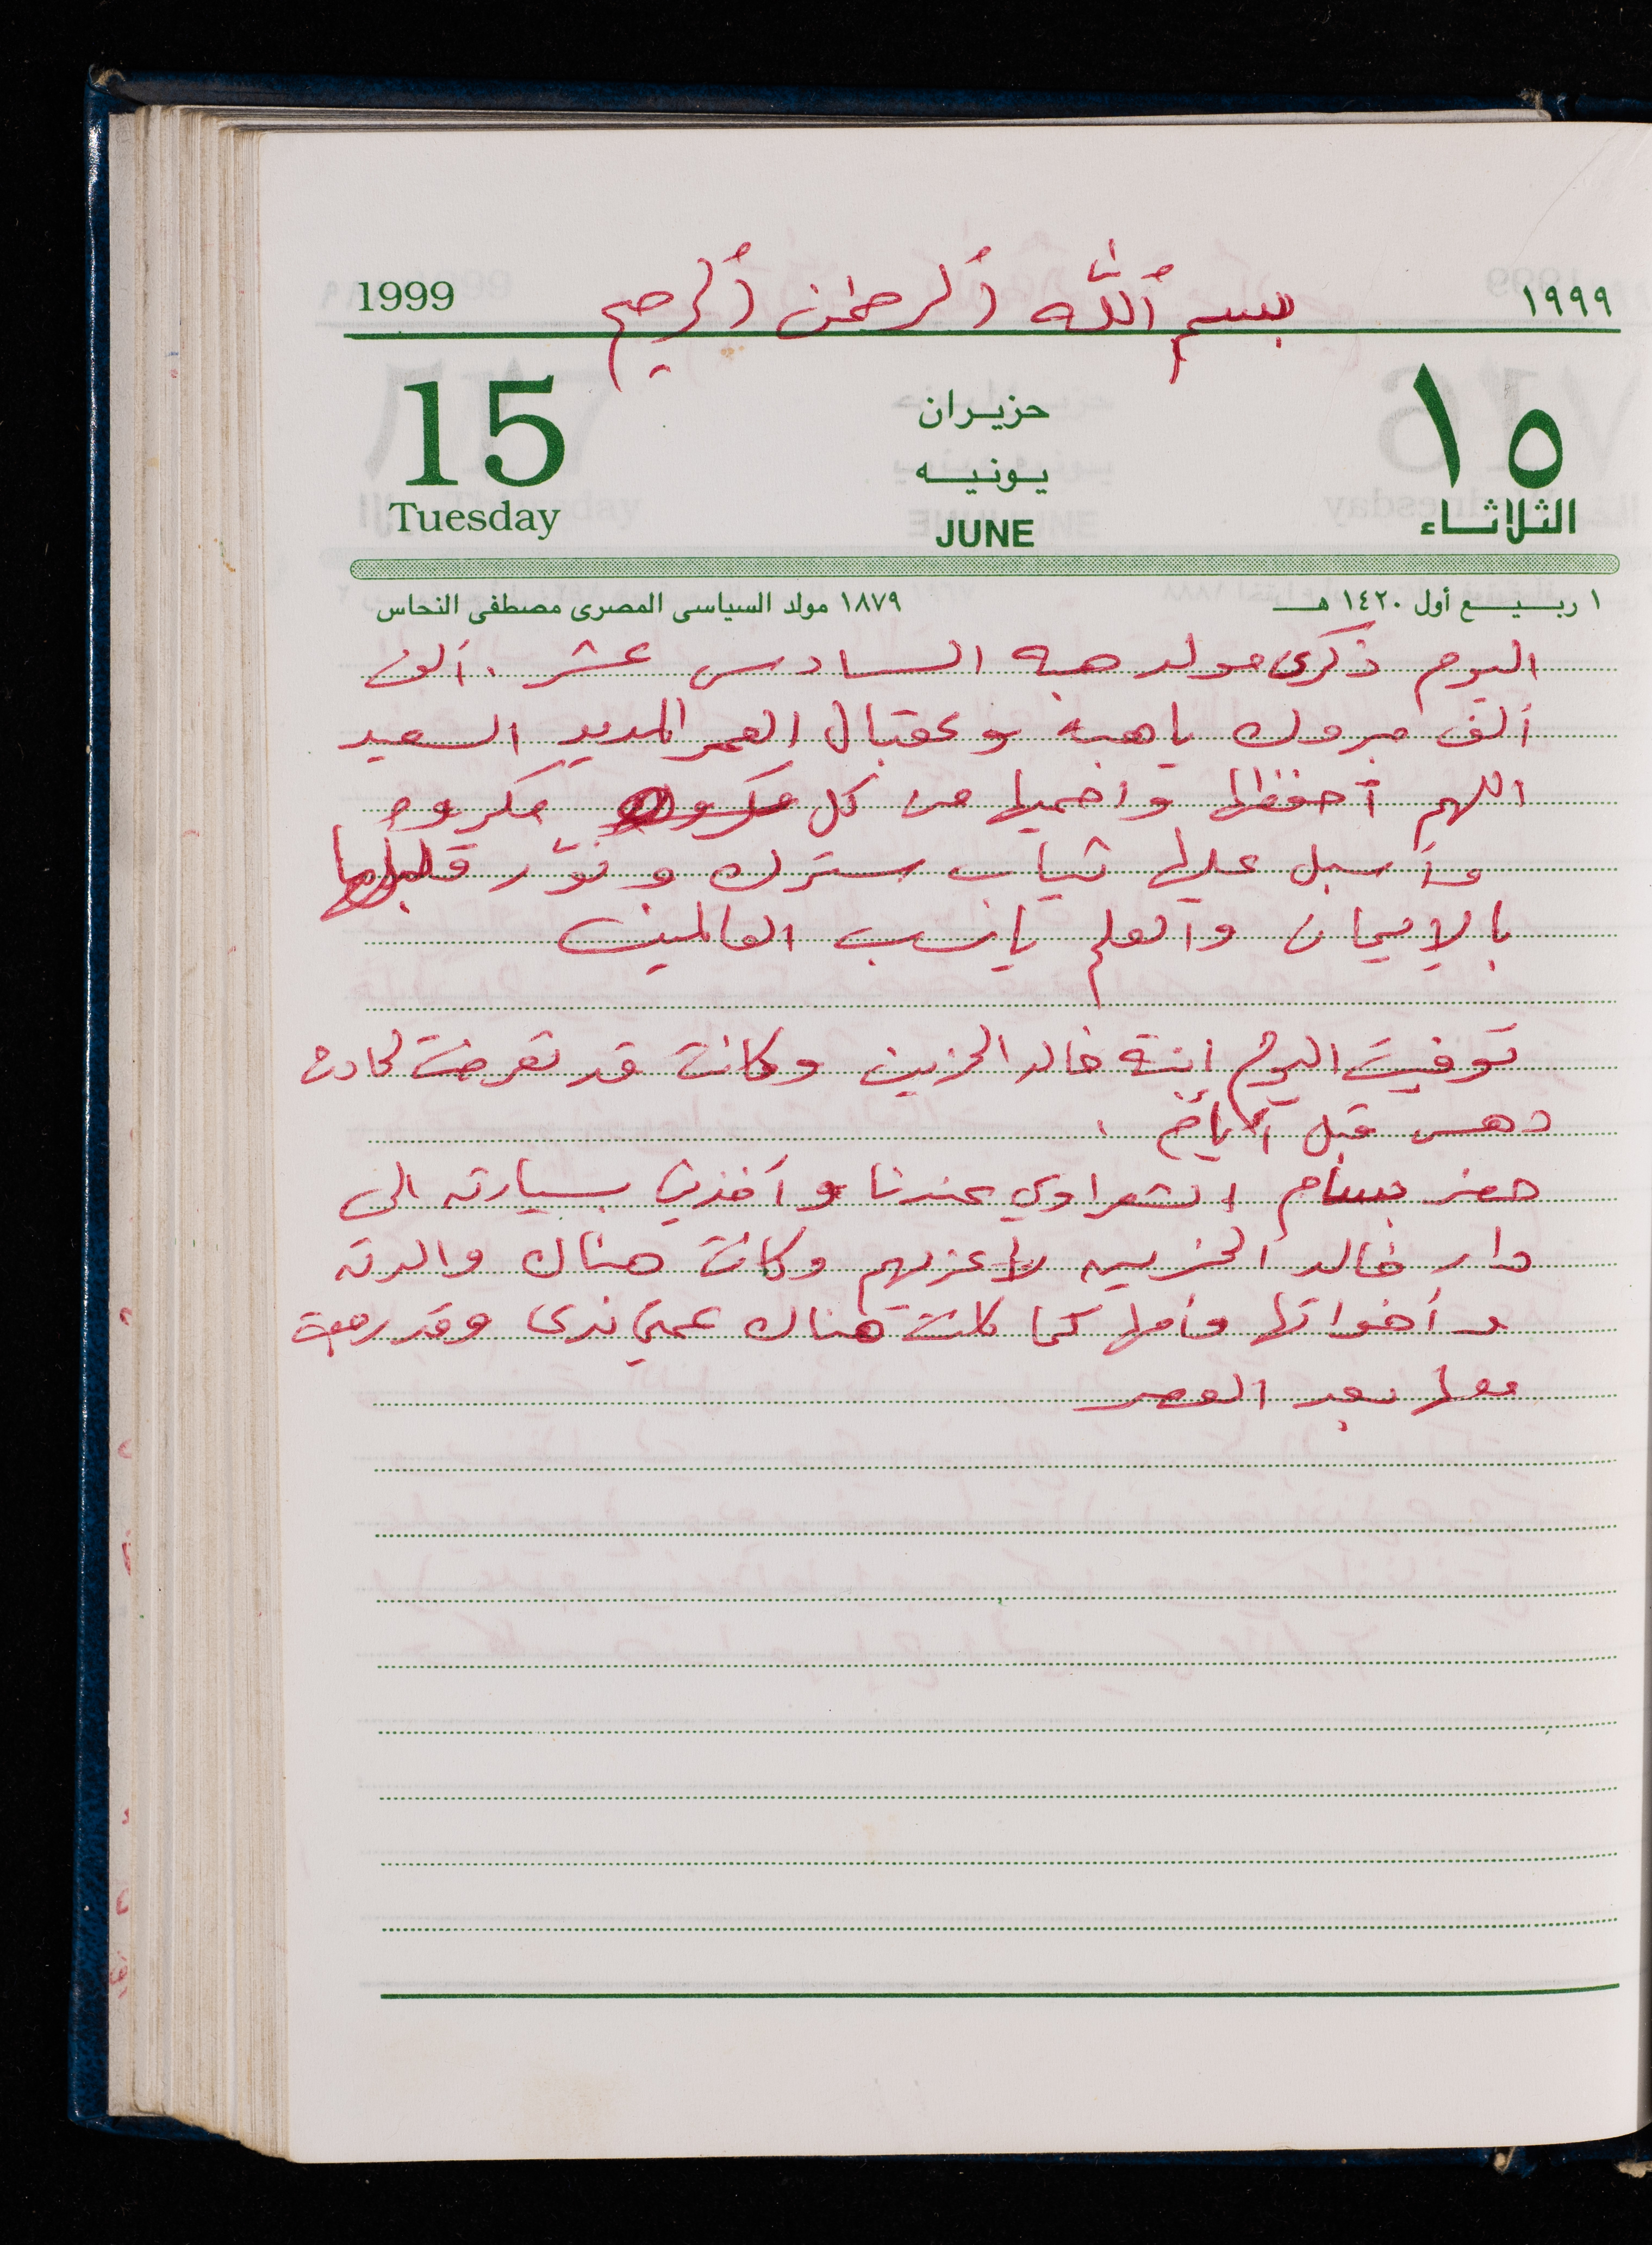 1999 بسم الله الرحمن الرحيم ١٩٩٩
15 حزيران ١٥
يونيه
Tuesday JUNE الثلاثاء
١ ربيع أول ١٤٢٠ هـ ١٨٧٩ مولد السياسى المصرى مصطفى النحاس
اليوم ذكرى مولد هبه السادس عشر . ألف
ألف مبروك يا هبه وعقبال العمر المديد السعيد
اللهم أحفظها واحميها من كل مكروه مكروه
وأسبل عليها ثياب سترك ونوّر قلبها
بالإيمان والعلم يا رب العالمين
توفيت اليوم ابنة خالد الحزين وكانت قد تعرضت لحادث
دهس قبل أيام .
حضر بسام الشعراوي عندنا وأخذني بسيارته الى
دار خالد الحزين لأعزيهم وكانت هناك والدته
وأخواتها وأمها كما كانت هناك عمتي ندى وقد رجعت
معها بعد العصر